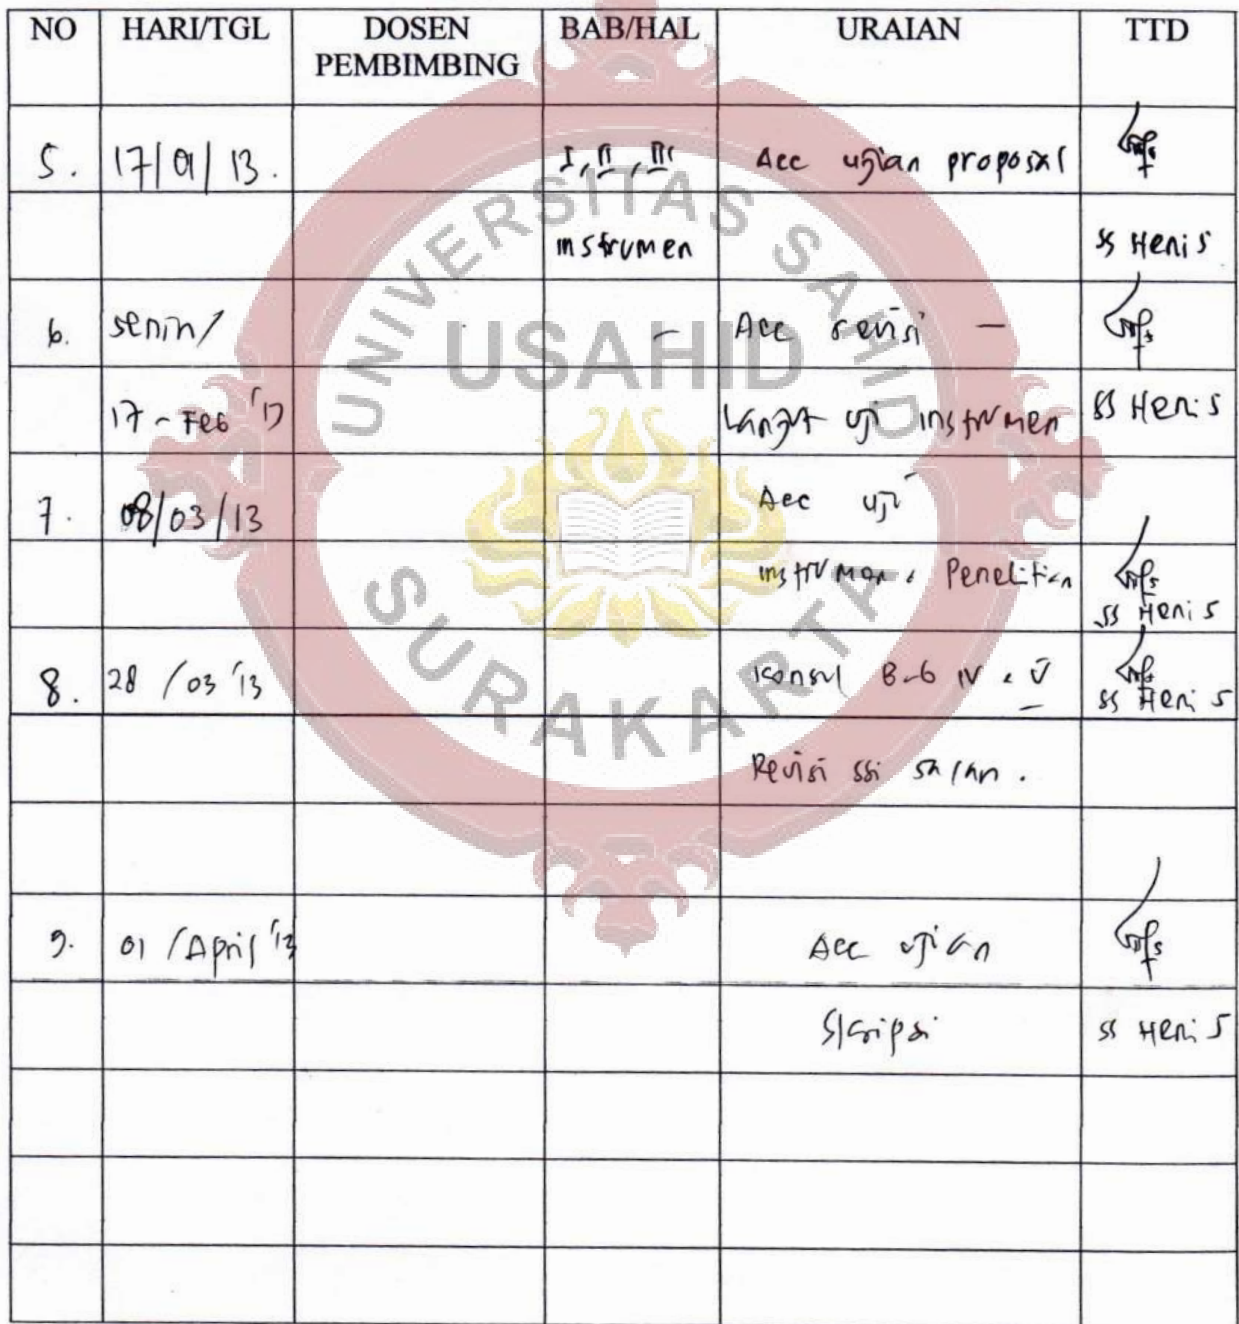 NO HARI/TGL DOSEN BAB/HAL URAIAN TTD
PEMBIMBING
5. 17/01/13. I, II, III Acc ujian proposal
instrumen ss Heni S
6. senin/ - Acc revisi -
17 - Feb '13 Lanjut uji instrumen ss Heni S
7. 08/03/13 Acc uji
instrumen & Penelitian
ss Heni S
8. 28 /03 '13 Konsul Bab IV & V
ss Heni S
Revisi ssi saran.
9. 01 /April '13 Acc ujian
Skripsi ss Heni S
UNIVERSITAS SAHID
USAHID
SURAKARTA